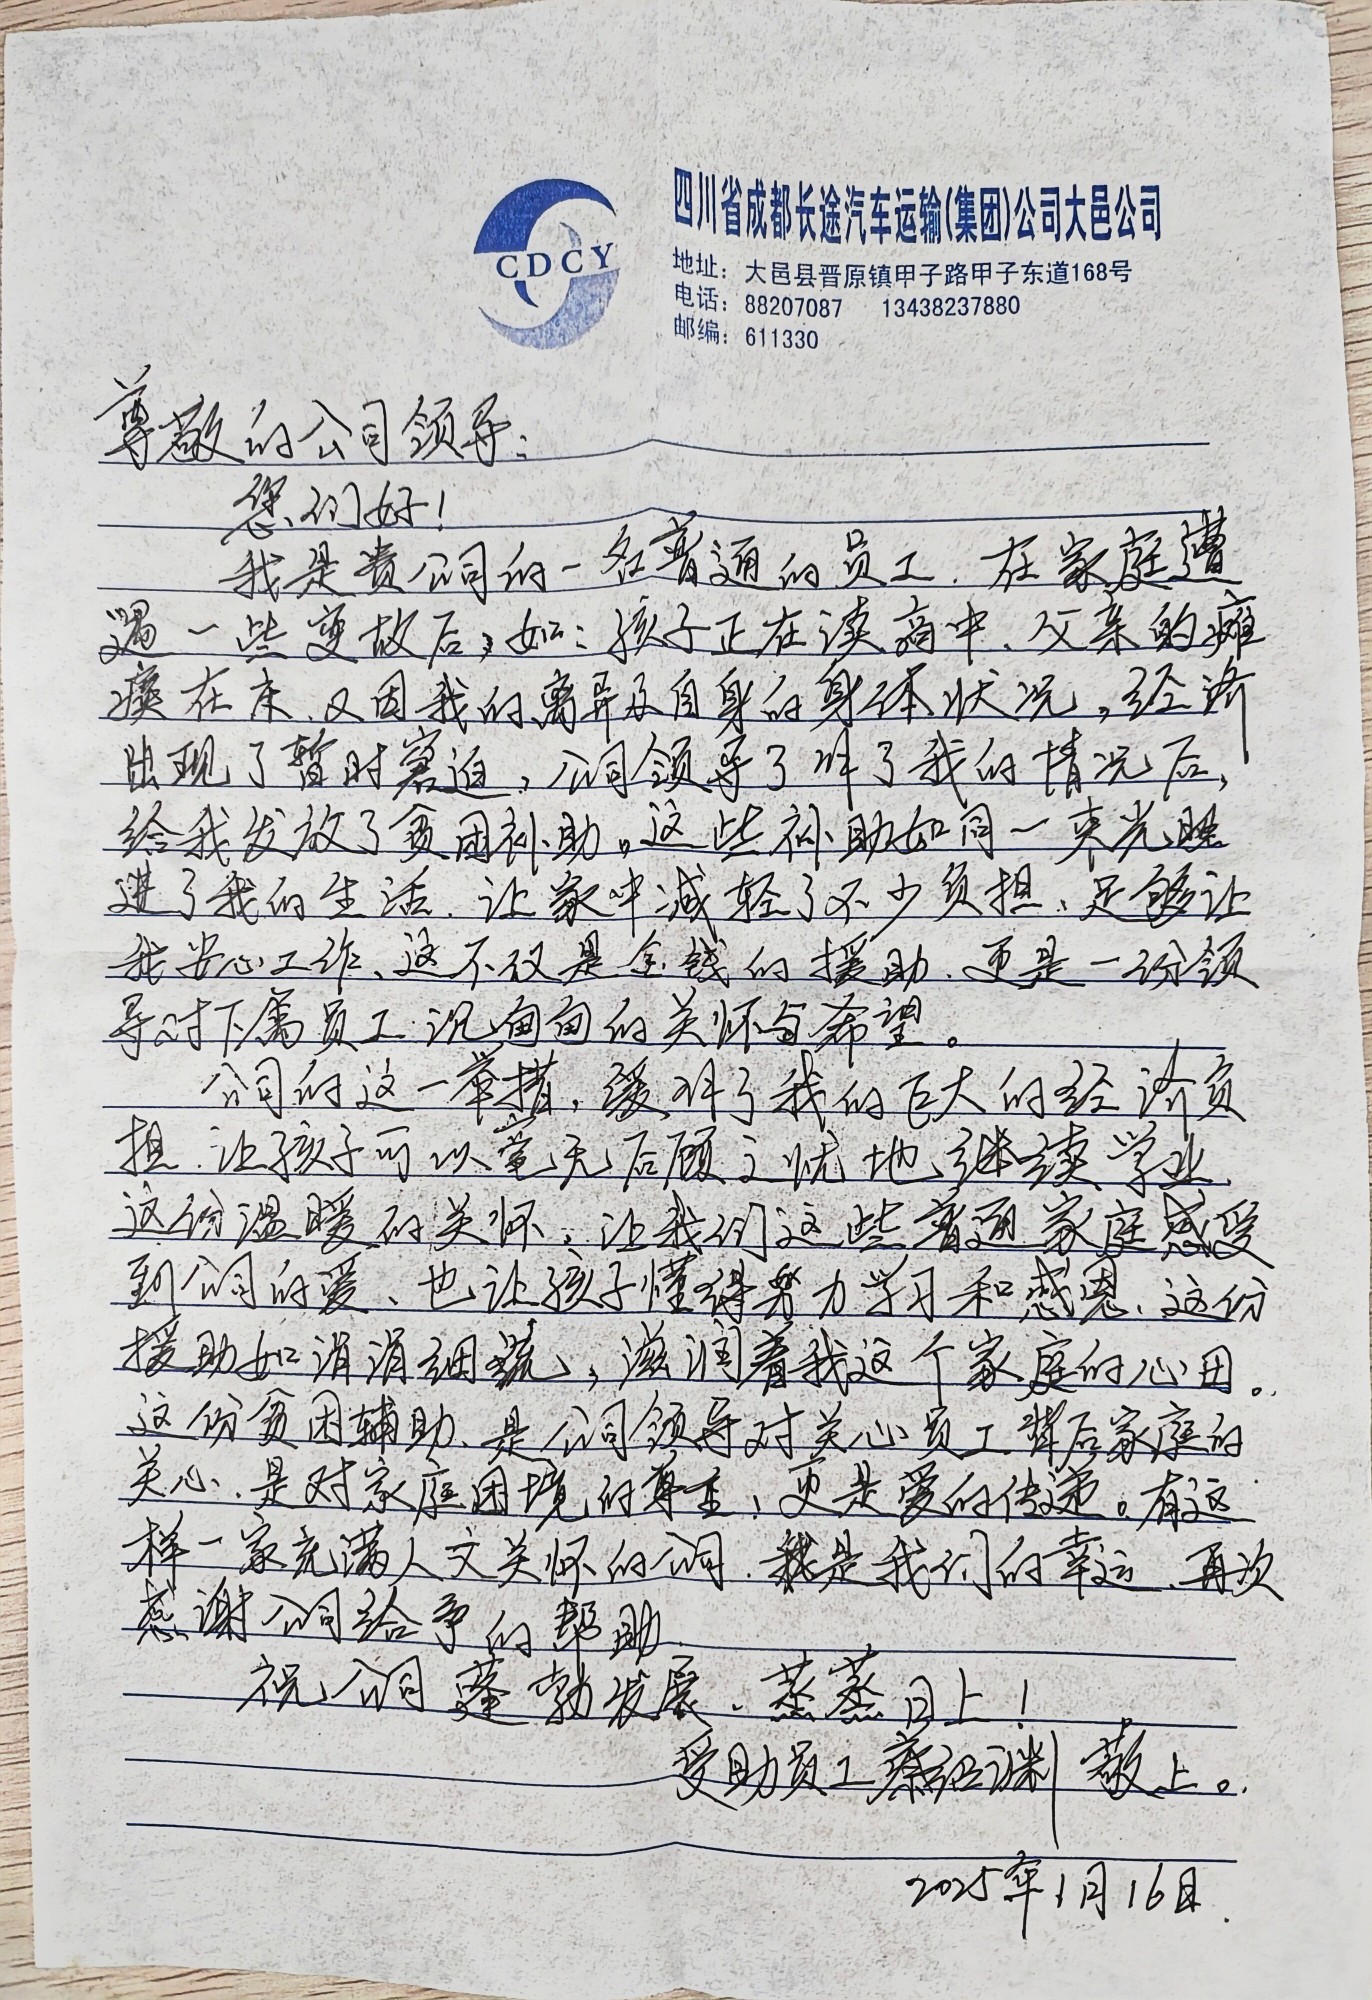 CDCY
四川省成都长途汽车运输(集团)公司大邑公司
地址：大邑县晋原镇甲子路甲子东道168号
电话：88207087 13438237880
邮编：611330
尊敬的公司领导：
您们好！
我是贵公司的一名普通的员工，在家庭遭
遇一些变故后，如：孩子正在读高中、父亲的瘫
痪在床、又因我的离异及自身的身体状况，经济
出现了暂时窘迫，公司领导了解了我的情况后，
给我发放了贫困补助。这些补助如同一束光照
进了我的生活，让家中减轻了不少负担，足够让
我安心工作、这不仅是金钱的援助，更是一份领
导对下属员工沉甸甸的关怀与希望。
公司的这一举措，缓解了我的巨大的经济负
担，让孩子可以毫无后顾之忧地继续学业
这份温暖的关怀，让我们这些普通家庭感受
到公司的爱、也让孩子懂得努力学习和感恩，这份
援助如涓涓细流，滋润着我这个家庭的心田。
这份贫困辅助、是公司领导对关心员工背后家庭的
关心，是对家庭困境的尊重，更是爱的传递。有这
样一家充满人文关怀的公司，就是我们的幸运、再次
感谢公司给予的帮助.
祝公司蓬勃发展、蒸蒸日上！
受助员工 敬上。
2025年1月16日.